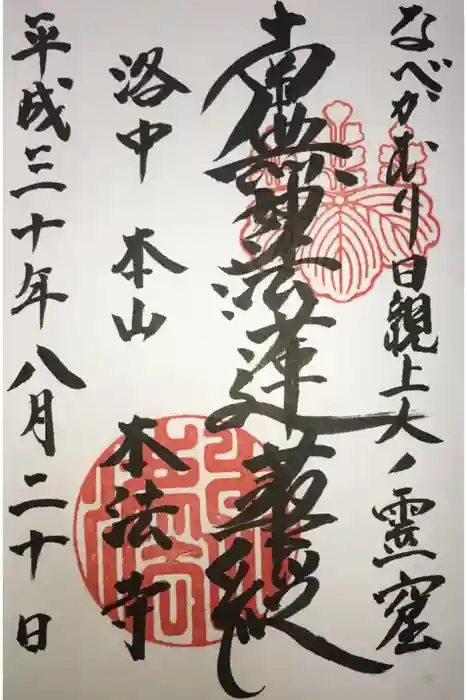 なべかむり日親上人ノ霊窟
南無妙法蓮華経
洛中 本山 本法寺
平成三十年八月二十日